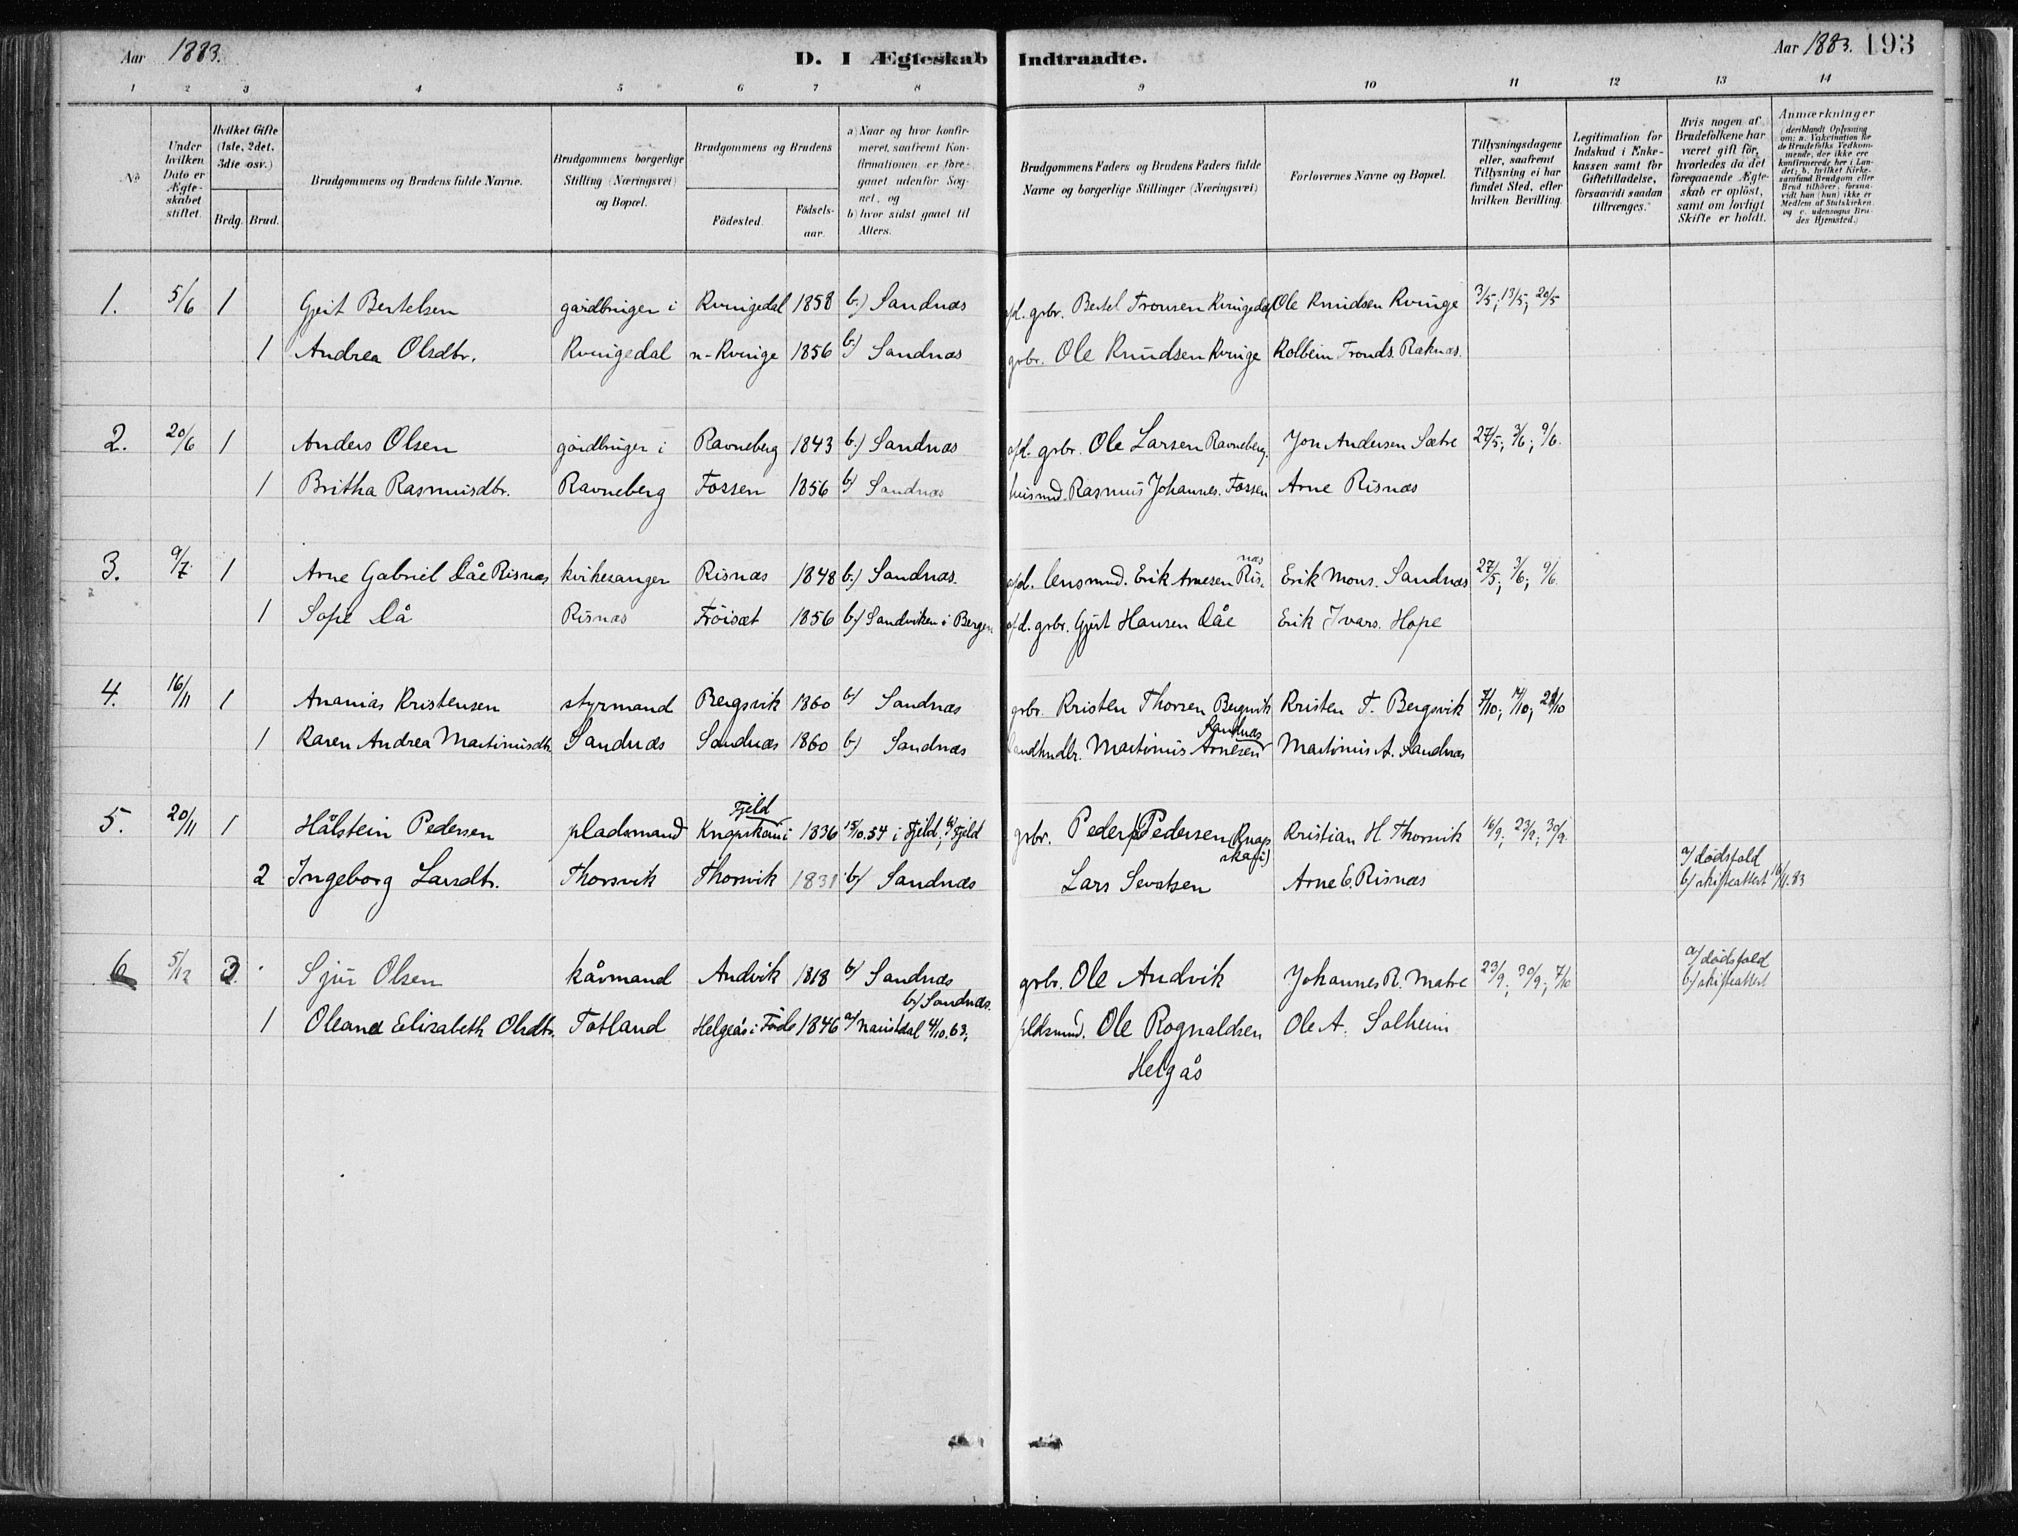 Aar 1883. D. I Ægteskab Indtraadte. Aar 1883. 193
1 2 3 4 5 6 7 8 9 10 11 12 13 14
No
Under hvilken Dato er Ægteskabet stiftet.
Hvilket Gifte (1ste, 2det, 3die osv.)
Brdg. Brud.
Brudgommens og Brudens fulde Navne.
Brudgommens borgerlige Stilling (Næringsvei) og Bopæl.
Brudgommens og Brudens
Fødested. Fødsels-aar.
a) Naar og hvor konfirmeret, saafremt Konfirmationen er foreganet udenfor Sognet, og
b) hvor sidst gaaet til Alters.
Brudgommens Faders og Brudens Faders fulde Navne og borgerlige Stillinger (Næringsvei)
Forlovernes Navne og Bopæl.
Tillysningsdagene eller, saafremt Tillysning ei har fundet Sted, efter hvilken Bevilling.
Legitimation for Indskud i Ænkekassen samt for Giftetilladelse, forsaavidt saadan tiltrænges.
Hvis nogen af Brudefolkene har været gift før, hvorledes da det foregaaende Ægteskab er opløst, samt om lovligt Skifte er holdt.
Anmærkninger (deriblandt Oplysning om: a. Vakcination for de Brudefolks Vedkommende, der ikke ere konfirmerede her i Landet; b. hvilket Kirkesamfund Brudgom eller Brud tilhører, forsaavidt han (hun) ikke er Medlem af Statskirken, og c. udensogns Brudes Hjemsted.)
1. 5/6 1 Gjert Bertelsen gårdbruger i Kvingedal 1858 b.) Sandnæs afd. grbr. Bertel Tronsen Kvingedal Ole Knudsen Kvinge 3/5; 13/5; 20/5
1 Andrea Olsdtr. Kvingedal n-Kvinge 1856 b) Sandnæs grbr. Ole Knudsen Kvinge Kolbein Tronds. Raknæs.
2. 20/6 1 Anders Olsen gårdbruger i Ravneberg 1843 b.) Sandnæs afd. grbr. Ole Larsen Ravneberg. Jon Andersen Sætre 27/5; 3/6; 9/6.
1 Britha Rasmusdtr. Ravneberg Fossen 1856 b) Sandnæs husmd. Rasmus Johannes. Fossen Arne Risnæs
3. 9/7. 1 Arne Gabriel Dåe Risnæs kirkesanger Risnæs 1848 b.) Sandnæs. afd. lensmnd. Erik Arnesen Risnæs Erik Mons. Sandnæs 27/5; 3/6; 9/6.
1 Sofie Då Risnæs Fröiset 1856 b) Sandviken i Bergen afd. grbr. Gjert Hansen Dåe Erik Ivars. Hope
4. 16/11 1 Ananias Kristensen styrmand Bergsvik 1860 b) Sandnæs grbr. Kristen Thorsen Bergsvik Kristen T. Bergsvik 7/10; 14/10; 21/10
1 Karen Andrea Martinusdtr. Sandnæs Sandnæs 1860 b) Sandnæs landhndlr. Martinus Arnesen Sandnæs Martinus A. Sandnæs
5. 20/11 1 Hålstein Pedersen pladsmand Knapskau i Fjeld 1836 15/10.54 i Fjeld; b) Fjeld grbr. Peder Pedersen (Knapskau i) Kristian H. Thorsvik 16/9; 23/9; 30/9.
2 Ingeborg Larsdtr. Thorsvik Thorsvik 1831 b) Sandnæs Lars Sevatsen Arne E. Risnæs a/ dødsfald b/ skifteattest 16/11.83
6 5/12 3. Sjur Olsen kårmand Andvik 1818 b) Sandnæs grbr. Ole Andvik Johannes R. Matre 23/9; 30/9; 7/10 a/ dødsfald b/ skifteattest
1 Oleane Elisabeth Olsdtr. Totland Helgeås i Førde 1846 a/ Naustdal 4/10.63. b/ Sandnæs. pldsmnd. Ole Rognaldsen Ole A. Solheim
Helgås